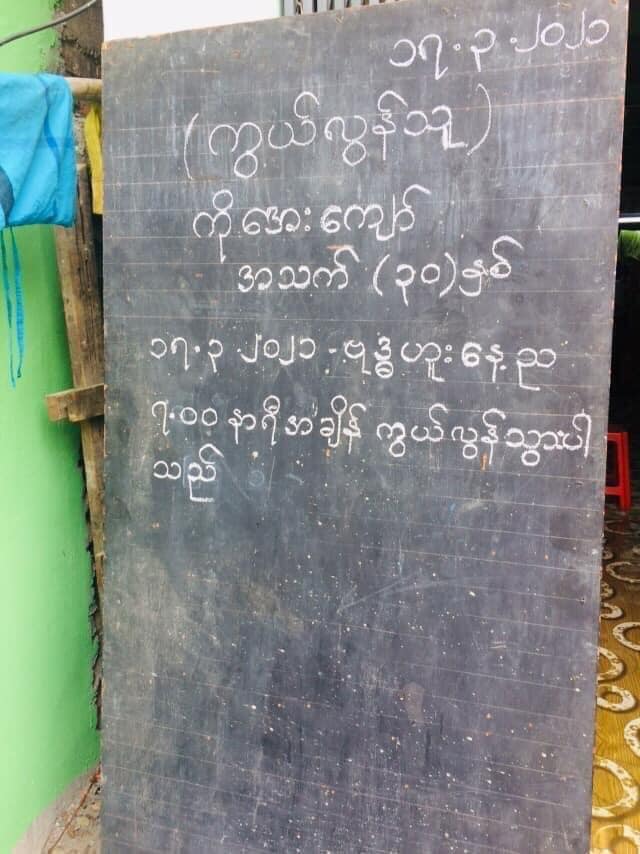 ၁၇.၃.၂၀၂၁
(ကွယ်လွန်သူ)
ကိုအေးကျော်
အသက် (၃၀) နှစ်
၁၇.၃ ၂၀၂၁ - ဗုဒ္ဓဟူးနေ့ည
၇.၀၀ နာရီအချိန် ကွယ်လွန်သွားပါ
သည်